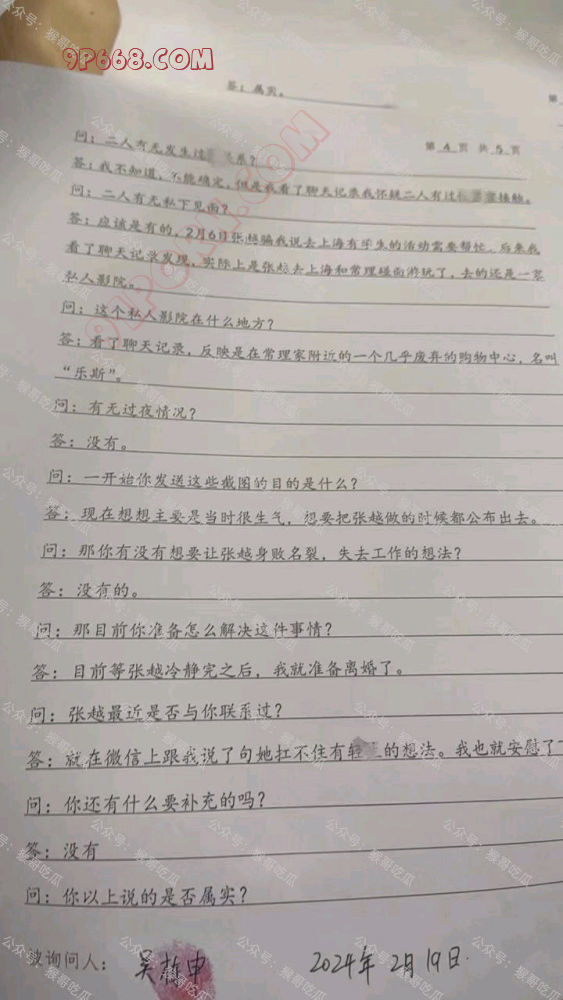 公众号：猴哥吃瓜
9P668.COM
答：属实。
第
第 4 页 共 5 页
问：二人有无发生过 关系？
答：我不知道，不能确定，但是我看了聊天记录我怀疑二人有过 接触。
问：二人有无私下见面？
答：应该是有的，2月6日张越骗我说去上海有学生的活动需要帮忙，后来我
看了聊天记录发现，实际上是张越去上海和常理碰面游玩了，去的还是一家
私人影院。
问：这个私人影院在什么地方？
答：看了聊天记录，反映是在常理家附近的一个几乎废弃的购物中心，名叫
“乐斯”。
问：有无过夜情况？
答：没有。
问：一开始你发送这些截图的目的是什么？
答：现在想想主要是当时很生气，想要把张越做的时候都公布出去。
问：那你有没有想要让张越身败名裂，失去工作的想法？
答：没有的。
问：那目前你准备怎么解决这件事情？
答：目前等张越冷静完之后，我就准备离婚了。
问：张越最近是否与你联系过？
答：就在微信上跟我说了句她扛不住有轻 的想法。我也就安慰了
问：你还有什么要补充的吗？
答：没有
问：你以上说的是否属实？
被询问人：
2024年2月19日.